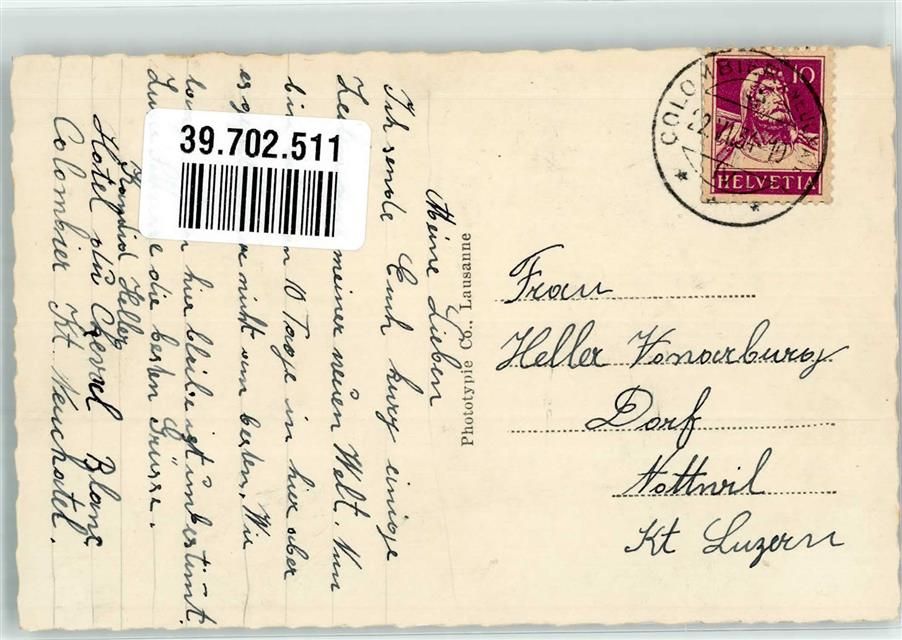 39.702.511
Meine Lieben
Ich sende Euch kurz einige
Zei meiner neuen Welt. Nun
bin n 10 Tage in hier aber
es g nicht am besten. Wie
lan hier bleibe ist unbestimt.
Lu e die besten Grüsse.
Heller
Hotel du Cheval Blanc
Colombier Kt. Neuchatel.
Phototypie Co., Lausanne
COLOMBIER
10
HELVETIA
Frau
Heller Vonarburg
Dorf
Nottwil
Kt Luzern